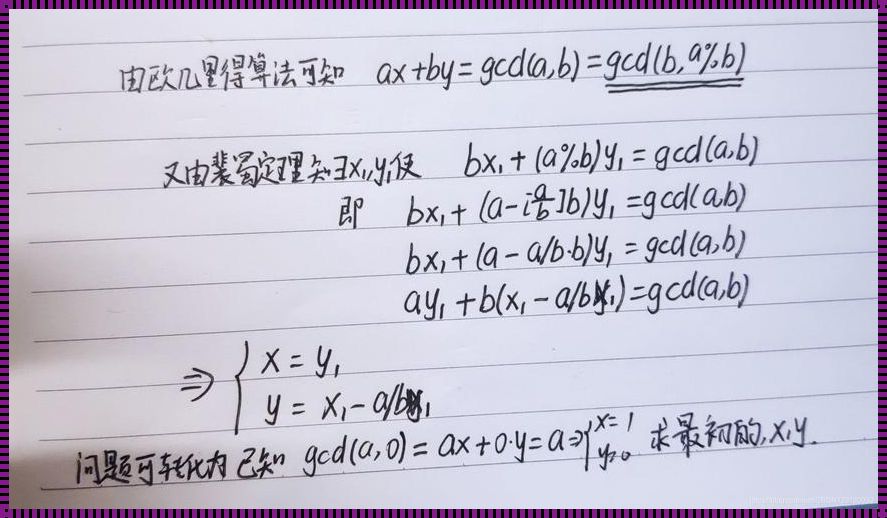 由欧几里得算法可知 ax+by=gcd(a,b)=gcd(b,a%b)
又由裴蜀定理知∃x₁,y₁使 bx₁+(a%b)y₁=gcd(a,b)
即 bx₁+(a-[a/b]b)y₁=gcd(a,b)
bx₁+(a-a/b·b)y₁=gcd(a,b)
ay₁+b(x₁-a/by₁)=gcd(a,b)
⇒ { x=y₁
y=x₁-a/by₁
问题可转化为 已知 gcd(a,0)=ax+0·y=a⇒{x=1 y=0 求最初的,x,y.